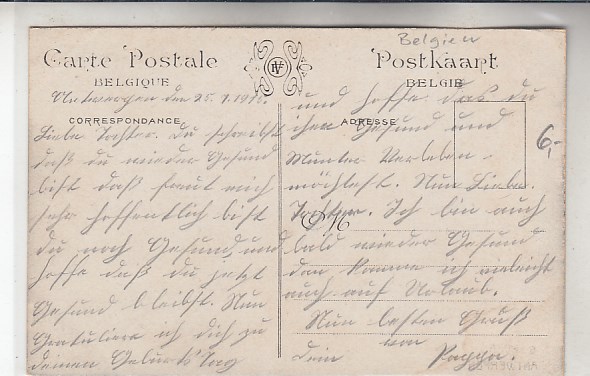 Belgien
Carte Postale Postkaart
BELGIQUE BELGIE
Antwerpen den 25.7.1915.
CORRESPONDANCE ADRESSE
Liebe Tochter. Du schreibst
daß du wieder Gesund
bist daß freut mich
sehr hoffentlich bist
du noch Gesund und
hoffe daß du jetzt
Gesund bleibst. Nun
Gratuliere ich dich zu
deinen Geburtstag
und hoffe das du
ihn Gesund und
Munter Verleben
möchtest. Nun Liebe
Tochter. Ich bin auch
bald wieder Gesund
dan komme ich vieleicht
auch auf Urlaub.
Nun besten Gruß
von
dein Pappa.
6,-